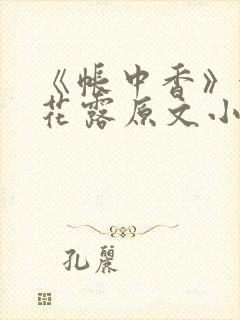 《帐中香》
花露原文小
孔丽